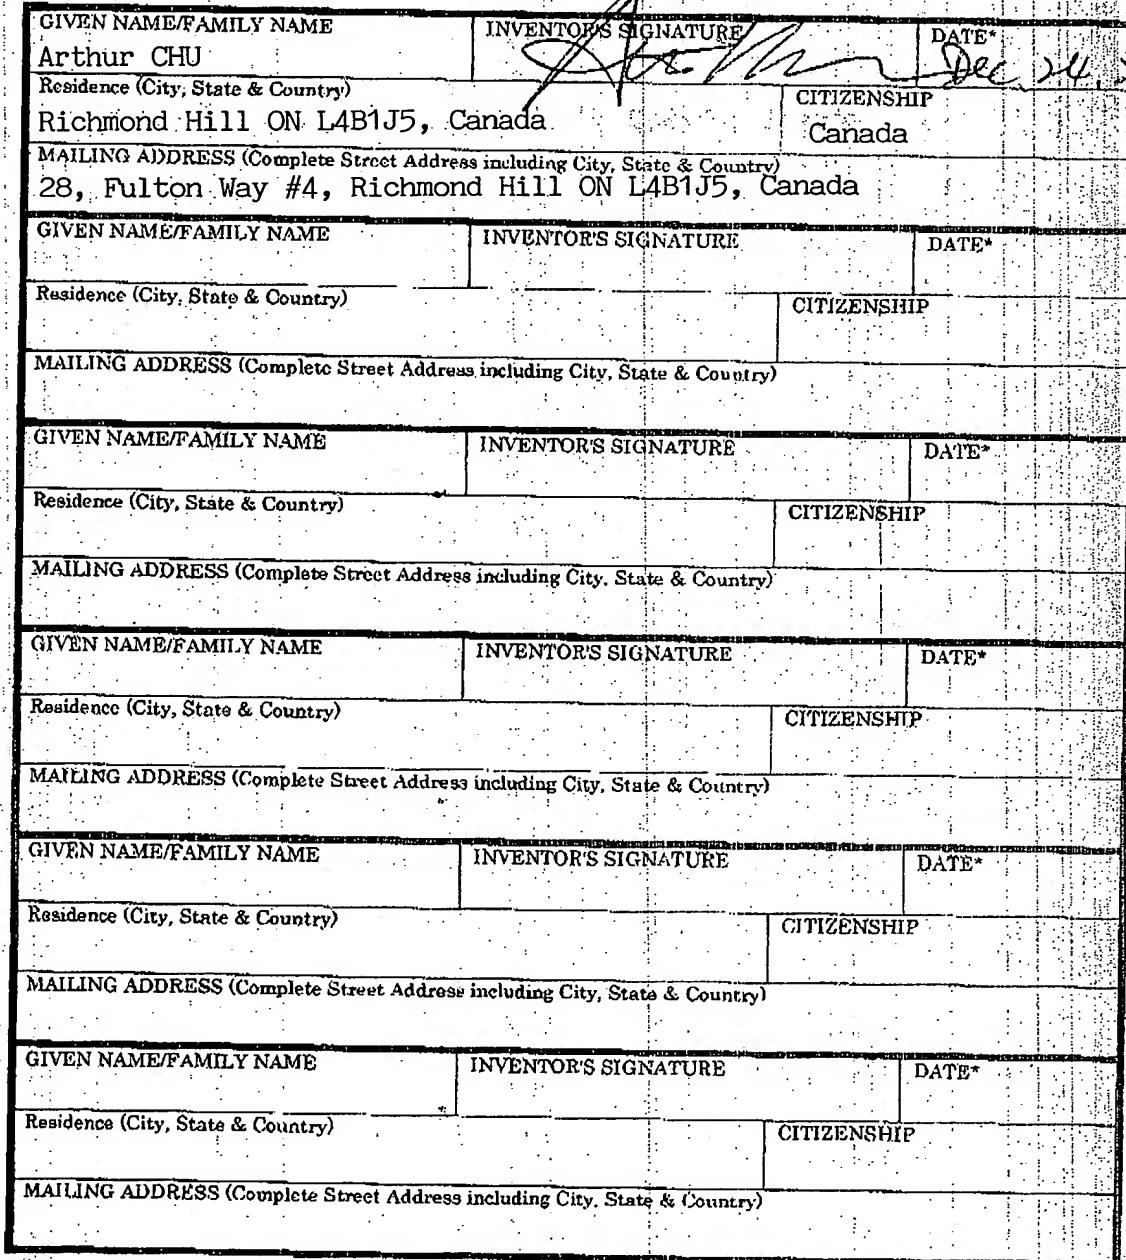 GIVEN NAME/FAMILY NAME INVENTOR'S SIGNATURE DATE*
Arthur CHU Dec 24,
Residence (City, State & Country) CITIZENSHIP
Richmond Hill ON L4B1J5, Canada Canada
MAILING ADDRESS (Complete Street Address including City, State & Country)
28, Fulton Way #4, Richmond Hill ON L4B1J5, Canada
GIVEN NAME/FAMILY NAME INVENTOR'S SIGNATURE DATE*
Residence (City, State & Country) CITIZENSHIP
MAILING ADDRESS (Complete Street Address including City, State & Country)
GIVEN NAME/FAMILY NAME INVENTOR'S SIGNATURE DATE*
Residence (City, State & Country) CITIZENSHIP
MAILING ADDRESS (Complete Street Address including City, State & Country)
GIVEN NAME/FAMILY NAME INVENTOR'S SIGNATURE DATE*
Residence (City, State & Country) CITIZENSHIP
MAILING ADDRESS (Complete Street Address including City, State & Country)
GIVEN NAME/FAMILY NAME INVENTOR'S SIGNATURE DATE*
Residence (City, State & Country) CITIZENSHIP
MAILING ADDRESS (Complete Street Address including City, State & Country)
GIVEN NAME/FAMILY NAME INVENTOR'S SIGNATURE DATE*
Residence (City, State & Country) CITIZENSHIP
MAILING ADDRESS (Complete Street Address including City, State & Country)